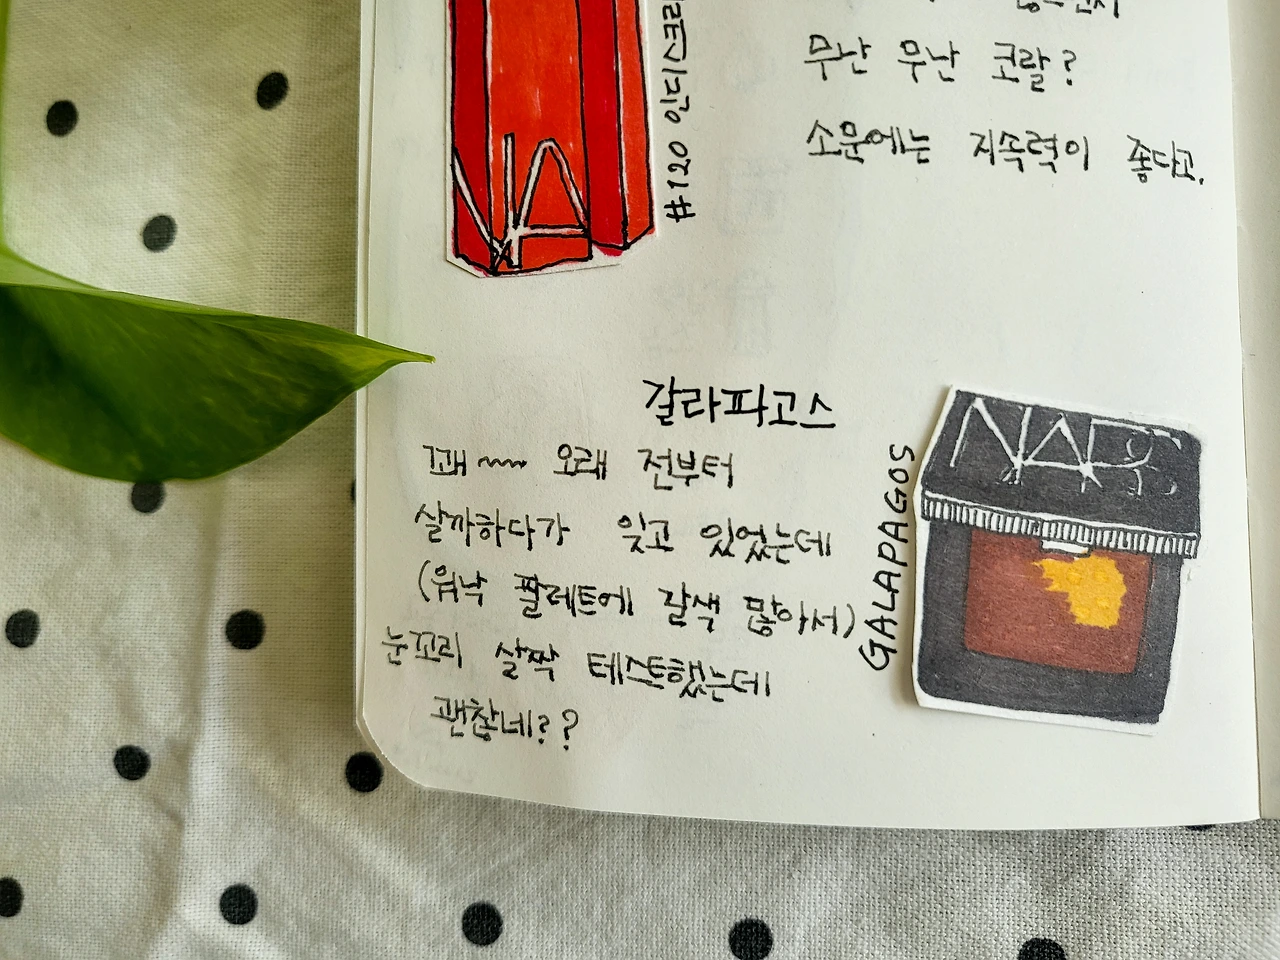 무난 무난 코랄?
소문에는 지속력이 좋다고.
#120
갈라파고스
꽤 오래 전부터
살까하다가 잊고 있었는데
(워낙 팔레트에 갈색 많아서)
눈꼬리 살짝 테스트했는데
괜찮네??
GALAPAGOS
NARS